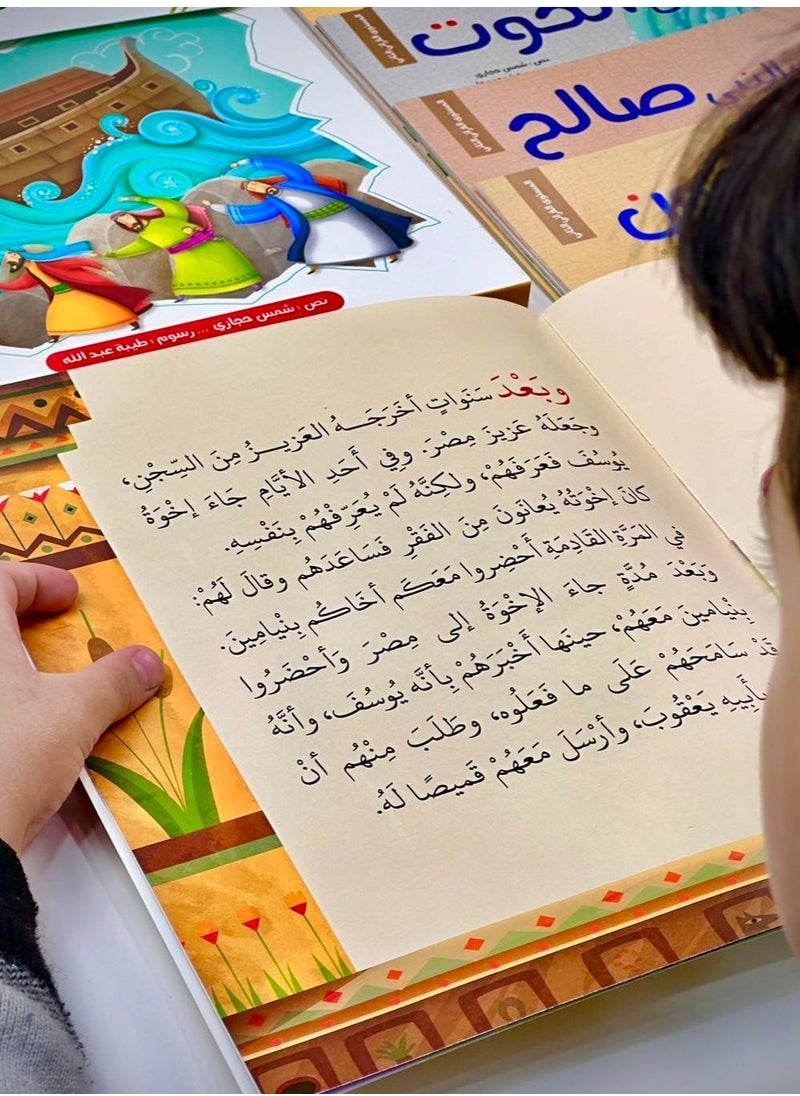 الحوت
نص : شمس حجازي
النبي صالح
نص : شمس حجازي ... رسوم : طيبة عبد الله
وبَعْدَ سَنَواتٍ أخَرَجَـهُ العَزيـزُ مِنَ السِّجْنِ،
وجَعَلَهُ عَزيزَ مِصْرَ. وفِي أَحَدِ الأيَّامِ جَاءَ إخْوَةُ
يُوسُفَ فَعَرَفَهُمْ، ولكِنَّهُ لَمْ يُعَرِّفْهُمْ بِنَفْسِهِ.
كانَ إخْوَتُهُ يُعانَونَ مِنَ الفَقْرِ فَسَاعَدَهُم وقالَ لَهُمْ:
في المَرَّةِ القَادِمَةِ أَحْضِروا مَعَكَم أخَاكُم بِنْيامِينَ.
وَبَعْدَ مُدَّةٍ جاءَ الإخْوَةُ إلى مِصْرَ وَأحْضَرُوا
بِنْيامينَ مَعَهُمْ، حينَها أخْبَرَهُمْ بِأنَّه يُوسُفَ، وأنَّهُ
قَدْ سَامَحَهُمْ عَلَى ما فَعَلُوه، وطَلَبَ مِنْهُم أنْ
بِأَبِيهِ يَعْقُوبَ، وأرْسَلَ مَعَهُمْ قَميصًا لَهُ.